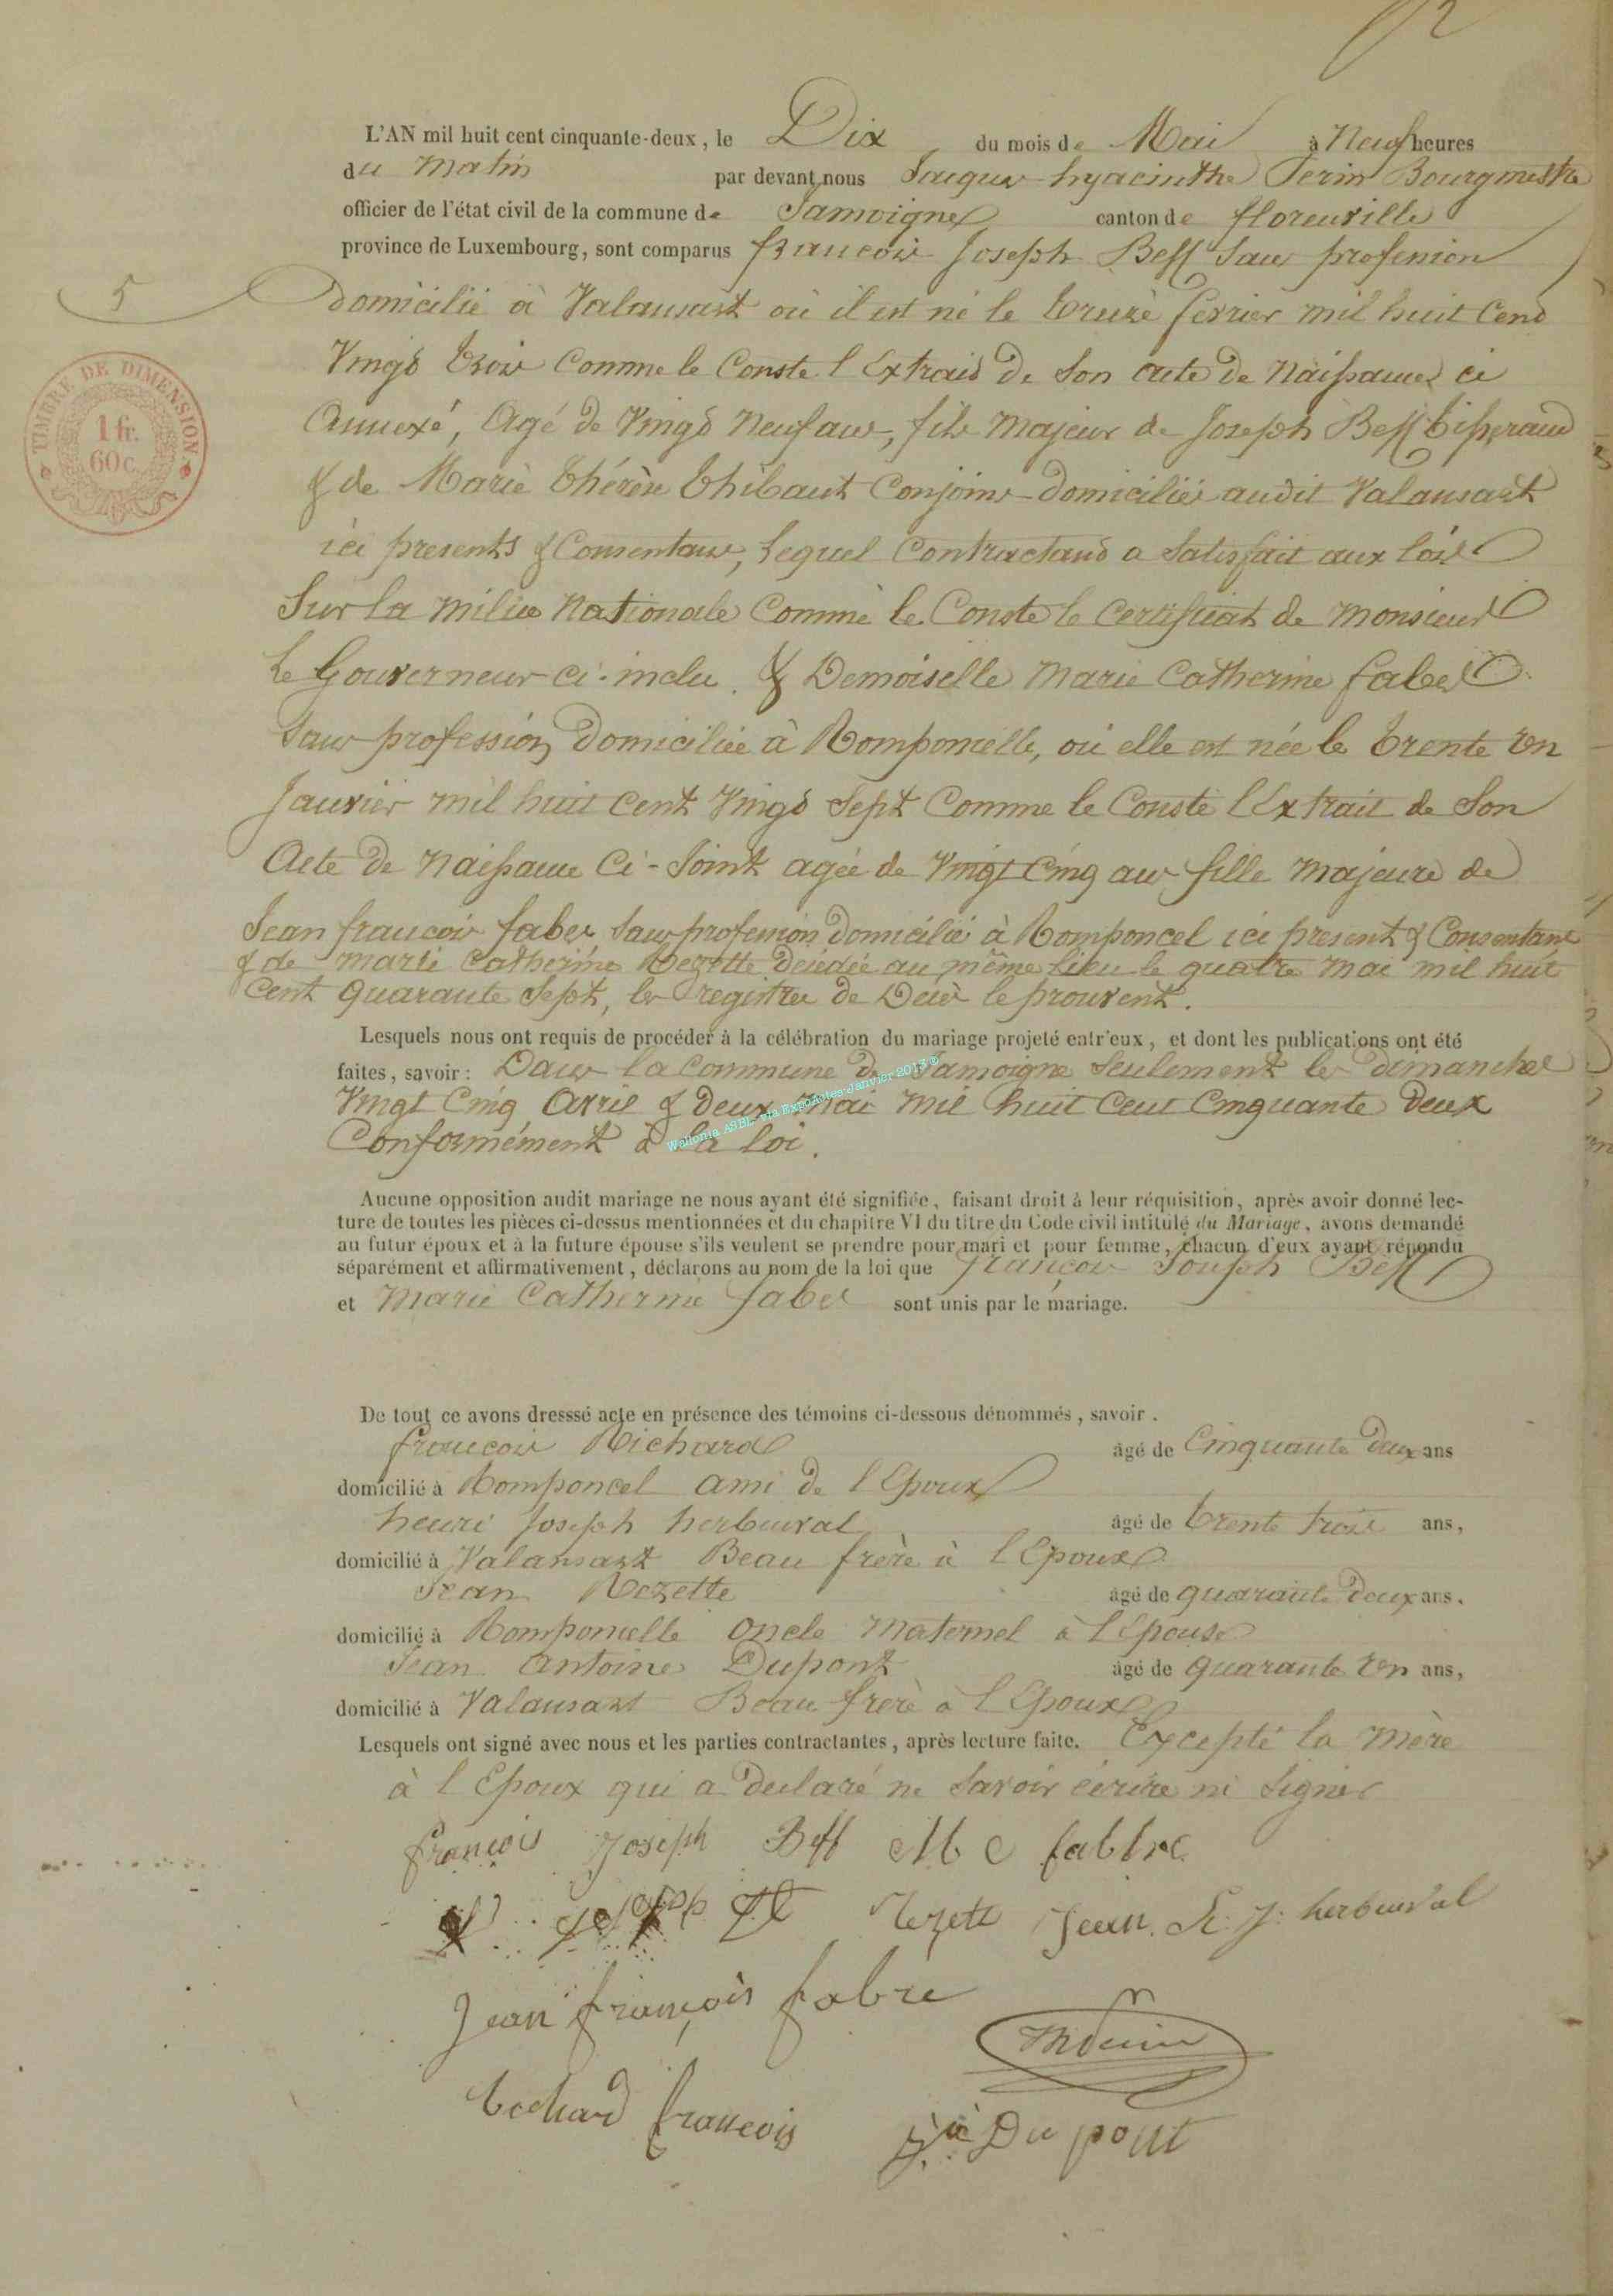 L'AN mil huit cent cinquante-deux, le Dix du mois de Mai à Neuf heures
du Matin par devant nous Jacques hyacinthe Perin Bourgmestre
officier de l'état civil de la commune de Jamoigne canton de florenville
province de Luxembourg, sont comparus francois Joseph Beff Sans profession
5
domicilié à Valansart où il est né le treize fevrier mil huit Cent
Vingt trois Comme le Conste l Extrait de Son acte de Naissance ci
Annexé, Agé de Vingt Neuf ans, fils Majeur de Joseph Beff tisserand
& de Marie thérèse thibaut Conjoins domiciliés audit Valansart
ici presents & Consentans, lequel Contractant a Satisfait aux lois
Sur la Milice Nationale Comme le Conste le Certificat de Monsieur
Le Gouverneur ci-inclu. & Demoiselle Marie Catherine faber
Sans profession Domiciliée à Romponcelle, où elle est née le trente Un
Janvier mil huit Cent Vingt Sept Comme le Conste l Extrait de Son
Acte de Naissance Ci-Joint agée de Vingt Cinq ans fille Majeure de
Jean francois faber Sans profession Domicilié à Romponcel ici present & Consentant
& de marie Catherine Rezette décédée au même lieu le quatre Mai mil huit
Cent Quarante Sept, les registres de Décès le prouvent.
Lesquels nous ont requis de procéder à la célébration du mariage projeté entr'eux, et dont les publications ont été
faites, savoir: Dans la Commune de Jamoigne Seulement les dimanches
Vingt Cinq Avril & deux Mai Mil huit Cent Cinquante Deux
Conformément à la loi.
Aucune opposition audit mariage ne nous ayant été signifiée, faisant droit à leur réquisition, après avoir donné lec-
ture de toutes les pièces ci-dessus mentionnées et du chapitre VI du titre du Code civil intitulé du Mariage, avons demandé
au futur époux et à la future épouse s'ils veulent se prendre pour mari et pour femme, chacun d'eux ayant répondu
séparément et affirmativement, déclarons au nom de la loi que françois Joseph Beff
et Marie Catherine faber sont unis par le mariage.
De tout ce avons dresssé acte en présence des témoins ci-dessous dénommés, savoir.
francois Richard âgé de Cinquante deux ans
domicilié à Romponcel ami de l Epoux
henri Joseph herbeuval âgé de trente trois ans,
domicilié à Valansart Beau frère à l Epoux
Jean Rezette âgé de quarante Deux ans.
domicilié à Romponcelle Oncle Maternel à l Epouse
Jean Antoine Dupont âgé de quarante Un ans,
domicilié à Valansart Beau frère à l Epoux
Lesquels ont signé avec nous et les parties contractantes, après lecture faite. Excepté la Mère
à l Epoux qui a déclaré ne Savoir écrire ni Signer
françois Joseph Beff M C fabbre
Rezett Jean. h: J: herbeuval
Jean françois fabre
francois
J: a Dupont
TIMBRE DE DIMENSION
1 fr.
60 c.
Wallonia ASBL via ExpoActes Janvier 2013 ©